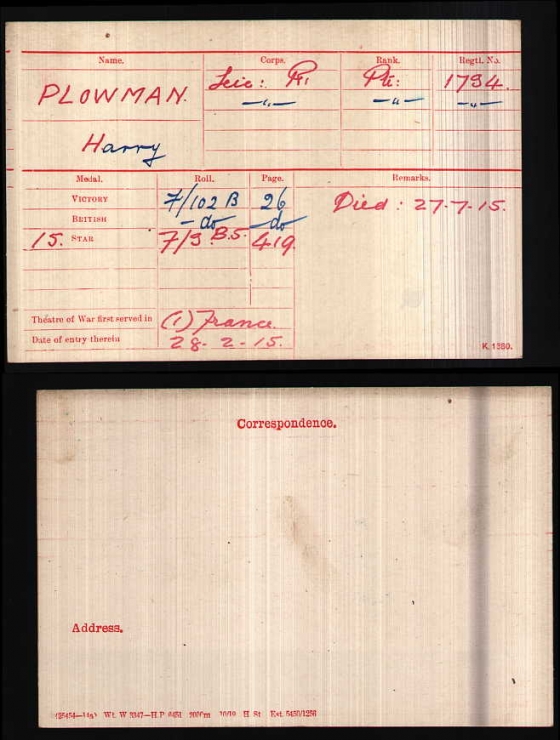 Name. Corps. Rank. Regtl. No.
PLOWMAN. Leic: R. Pte: 1794.
Harry —"— —"— —"—
Medal. Roll. Page. Remarks.
VICTORY F/102 B 26 Died: 27-7-15.
BRITISH - do - do
15. STAR 7/3 B.S. 419.
Théatre of War first served in (1) France.
Date of entry therein 28-2-15.
K. 1380.
Correspondence.
Address.
Wt. W 5347—H P 10/19 H St